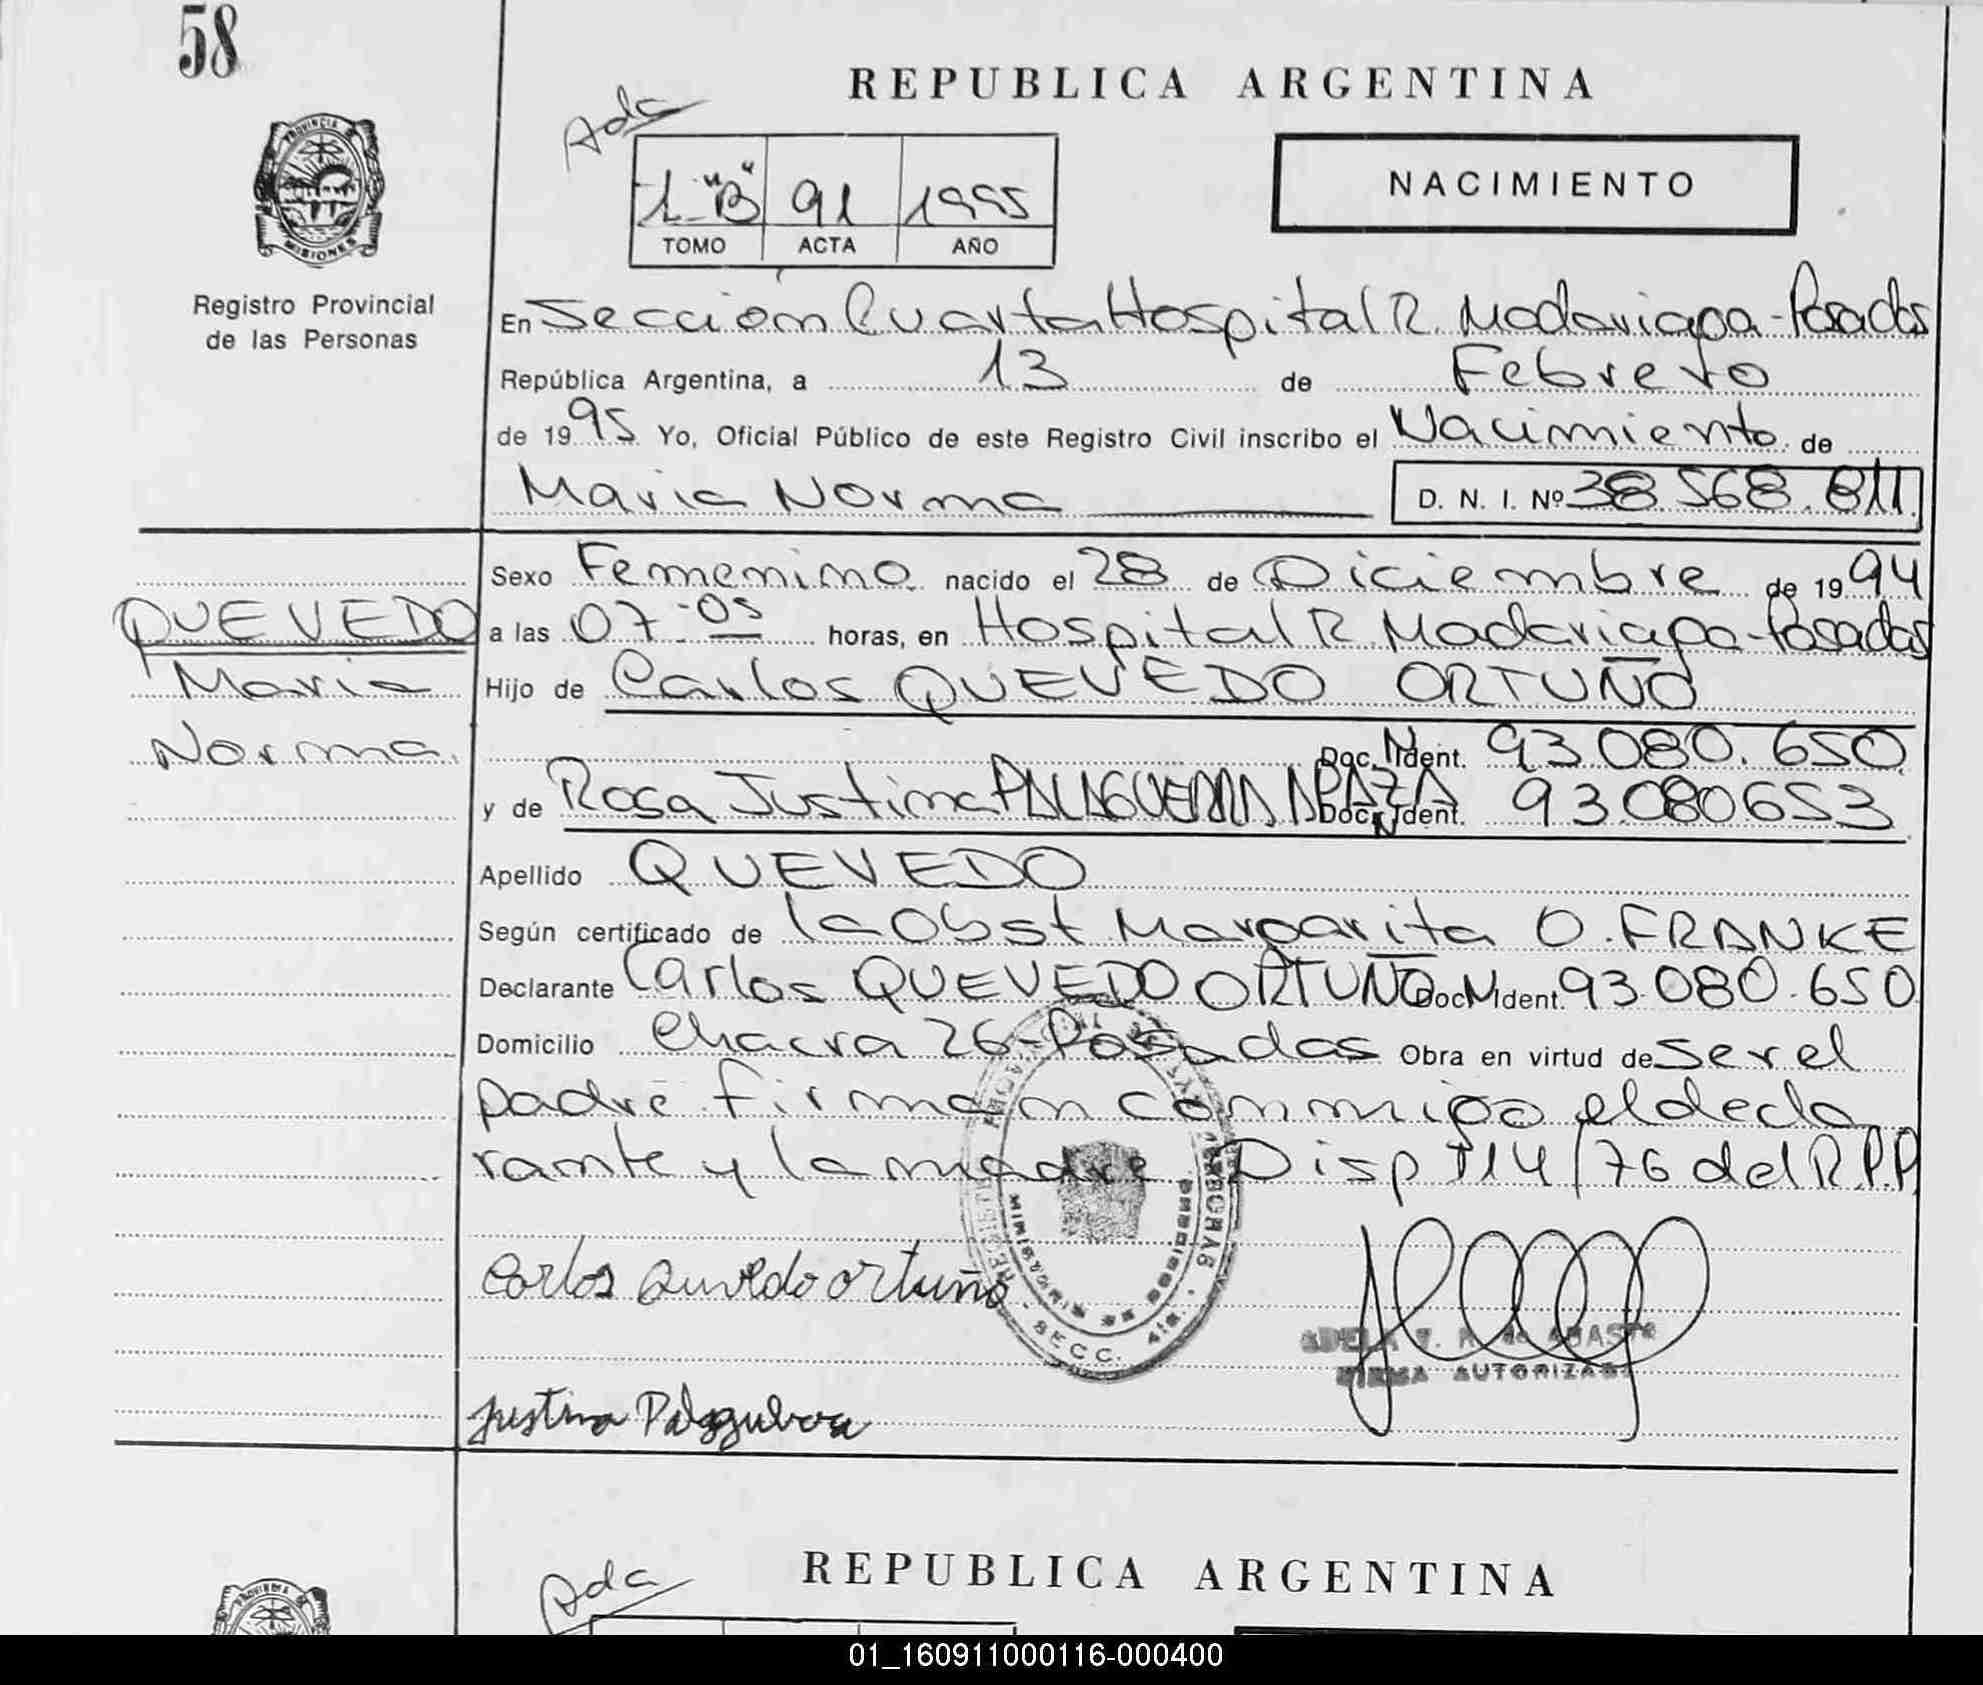 58
REPUBLICA ARGENTINA
Ada
PROVINCIA DE
MISIONES
NACIMIENTO
1 "B" 91 1995
TOMO ACTA AÑO
Registro Provincial
de las Personas
En Sección Cuarta Hospital R. Madariaga - Posadas
República Argentina, a 13 de Febrero
de 1995 Yo, Oficial Público de este Registro Civil inscribo el Nacimiento de
Maria Norma D. N. I. Nº 38.568.811
Sexo Femenino nacido el 28 de Diciembre de 1994
QUEVEDO
a las 07-05 horas, en Hospital R. Madariaga - Posadas
Maria
Hijo de Carlos QUEVEDO ORTUÑO
Norma.
Doc. N Ident. 93.080.650
y de Rosa Justina PALAGUERRA APAZA Doc. N Ident. 93080653
Apellido QUEVEDO
Según certificado de la Obst Margarita O. FRANKE
Declarante Carlos QUEVEDO ORTUÑO Doc N Ident. 93.080.650
Domicilio Chacra 26 - Posadas Obra en virtud de ser el
padre firman conmigo el decla
rante y la madre Disp 114/76 del R.P.P
Carlos Quevedo Ortuño
SECC. 4ta.
FIRMA AUTORIZADA
Justina
REPUBLICA ARGENTINA
Ada
01_160911000116-000400